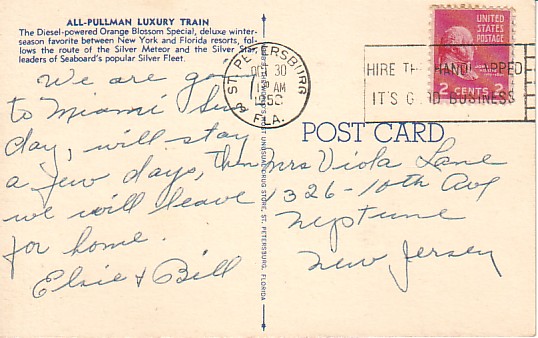 ALL-PULLMAN LUXURY TRAIN
The Diesel-powered Orange Blossom Special, deluxe winter-
season favorite between New York and Florida resorts, fol-
lows the route of the Silver Meteor and the Silver Star,
leaders of Seaboard's popular Silver Fleet.
We are going
to Miami Sun
day, will stay
a few days, then
we will leave
for home.
Elsie & Bill
ST. PETERSBURG
30
AM
FLA.
HIRE THE HANDICAPPED
IT'S GOOD BUSINESS
UNITED
STATES
POSTAGE
2 CENTS 2
POST CARD
Mrs Viola Lane
1326-10th Ave
Neptune
New Jersey
MOST UNUSUAL DRUG STORE, ST. PETERSBURG, FLORIDA